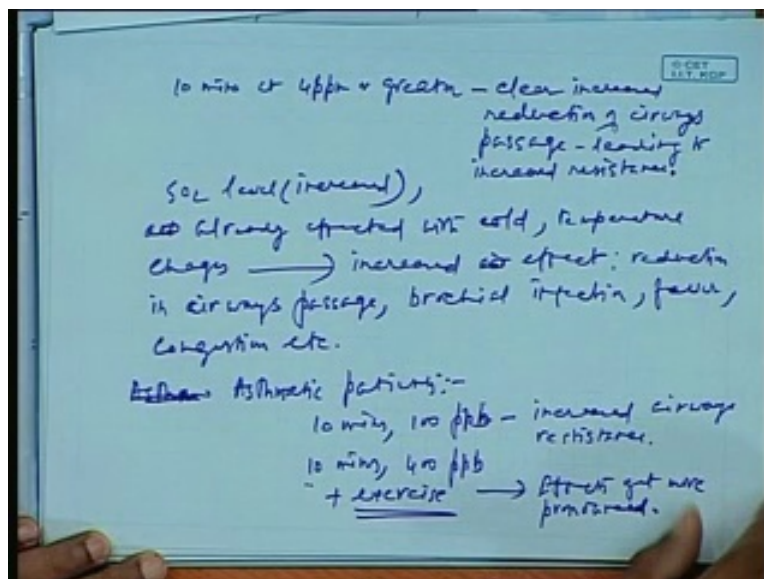 © CET
I.I.T. KGP
10 mins at 4ppm & greater - clear increased
reduction of airways
passage - leading to
increased resistance.
SO2 level (increased),
already effected with cold, temperature
chages → increased effect: reduction
in airways passage, brochial infection, fever,
Congestion etc.
Asthmatic patients:-
10 mins, 100 ppb - increased airways
resistance.
10 mins, 400 ppb
+ exercise → Effects get more
pronounced.